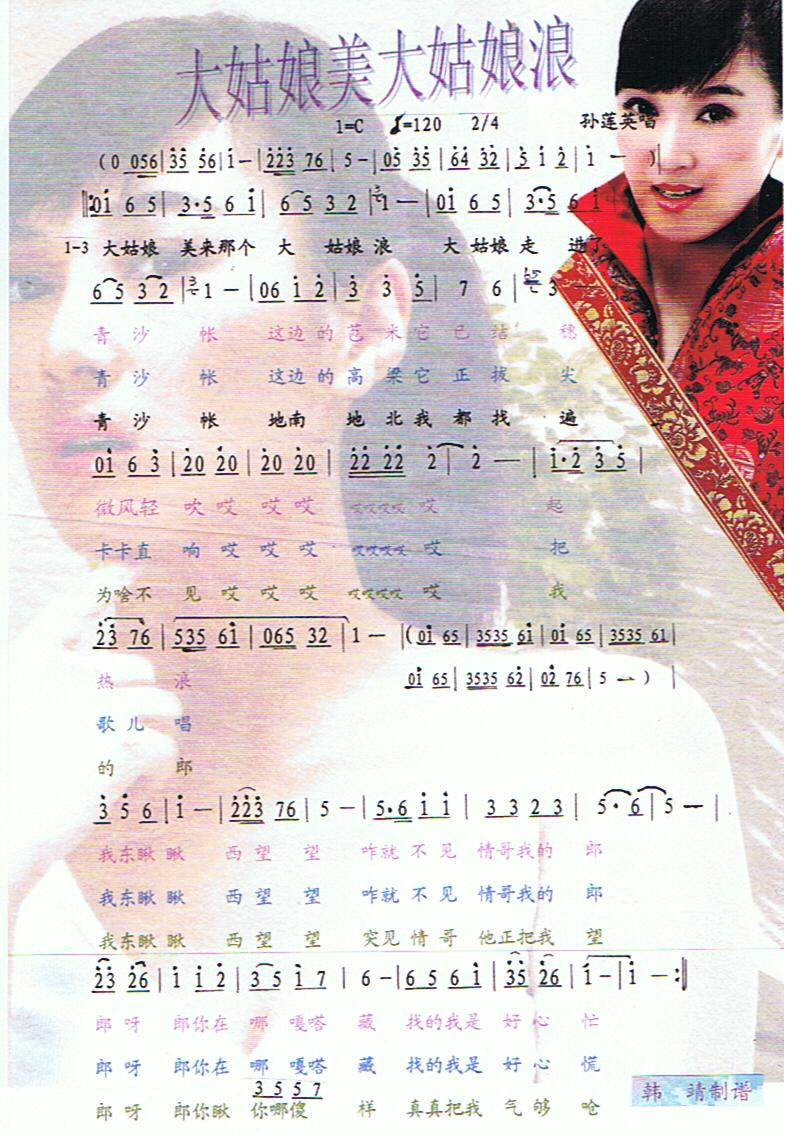 大姑娘美大姑娘浪
1=C ♩=120 2/4 孙莲英唱
(0 056|35 56|1̇-|2̇2̇3̇ 76|5-|05 35|64 32|5 1̇ 2̇|1̇ - )|
‖:01̇ 6 5|3·5 6 1̇|6 5 3 2|1-|01̇ 6 5|3·5 6 1̇
1-3 大姑娘 美来那个 大 姑娘 浪 大 姑娘 走 进了
6 5 3 2|1 -|06 1̇ 2̇|3̇ 3̇ 5̇|7 6|3 -
青 沙 帐 这边 的 芭 米 它 已 结 穗
青 沙 帐 这边 的 高 梁 它 正 拔 尖
青 沙 帐 地南 地 北 我 都 找 遍
01̇ 6 3̇|2̇0 2̇0|2̇0 2̇0|2̇2̇ 2̇2̇ 2̇|2̇ —|1̇·2̇ 3̇ 5̇|
微风轻 吹 哎 哎 哎 哎哎哎哎 哎 起
卡卡直 响 哎 哎 哎 哎哎哎哎 哎 把
为啥不 见 哎 哎 哎 哎哎哎哎 哎 我
2̇3̇ 76|535 61̇|065 32|1 —|(01̇ 65|3535 61̇|01̇ 65|3535 61|
热 浪 01̇ 65|3535 62̇|02̇ 76|5 —)|
歌 儿 唱
的 郎
3̇ 5̇ 6|1̇ —|2̇2̇3̇ 76|5 —|5·6 1̇ 1̇|3 3 2 3|5· 6|5 —|
我东瞅 瞅 西 望 望 咋就 不 见 情哥我的 郎
我东瞅 瞅 西 望 望 咋就 不 见 情哥我的 郎
我东瞅 瞅 西 望 望 突见 情 哥 他正把我 望
2̇3̇ 2̇6|1̇ 1̇ 2̇|3̇ 5 1̇ 7|6 -|6 5 6 1̇|3̇5̇ 2̇6|1̇ -|1̇ -:‖
郎 呀 郎你在 哪 嘎嗒 藏 找的我是 好 心 忙
郎 呀 郎你在 哪 嘎嗒 藏 找的我是 好 心 慌
3 5 5 7
郎 呀 郎你瞅 你哪傻 样 真真把我 气 够 呛
韩 靖制谱